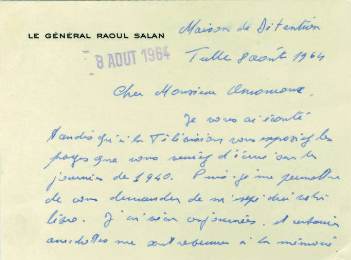 Maison de Détention
LE GÉNÉRAL RAOUL SALAN
8 AOUT 1964
Tulle 8 août 1964
Cher Monsieur
Je vous ai écouté
tandis qu'à la Télévision vous exposiez les
pages que vous venez d'écrire sur les
journées de 1940. Puis-je me permettre
de vous demander de m'expédier votre
livre. J'ai vécu ces journées, et certaines
anecdotes me sont revenues à la mémoire